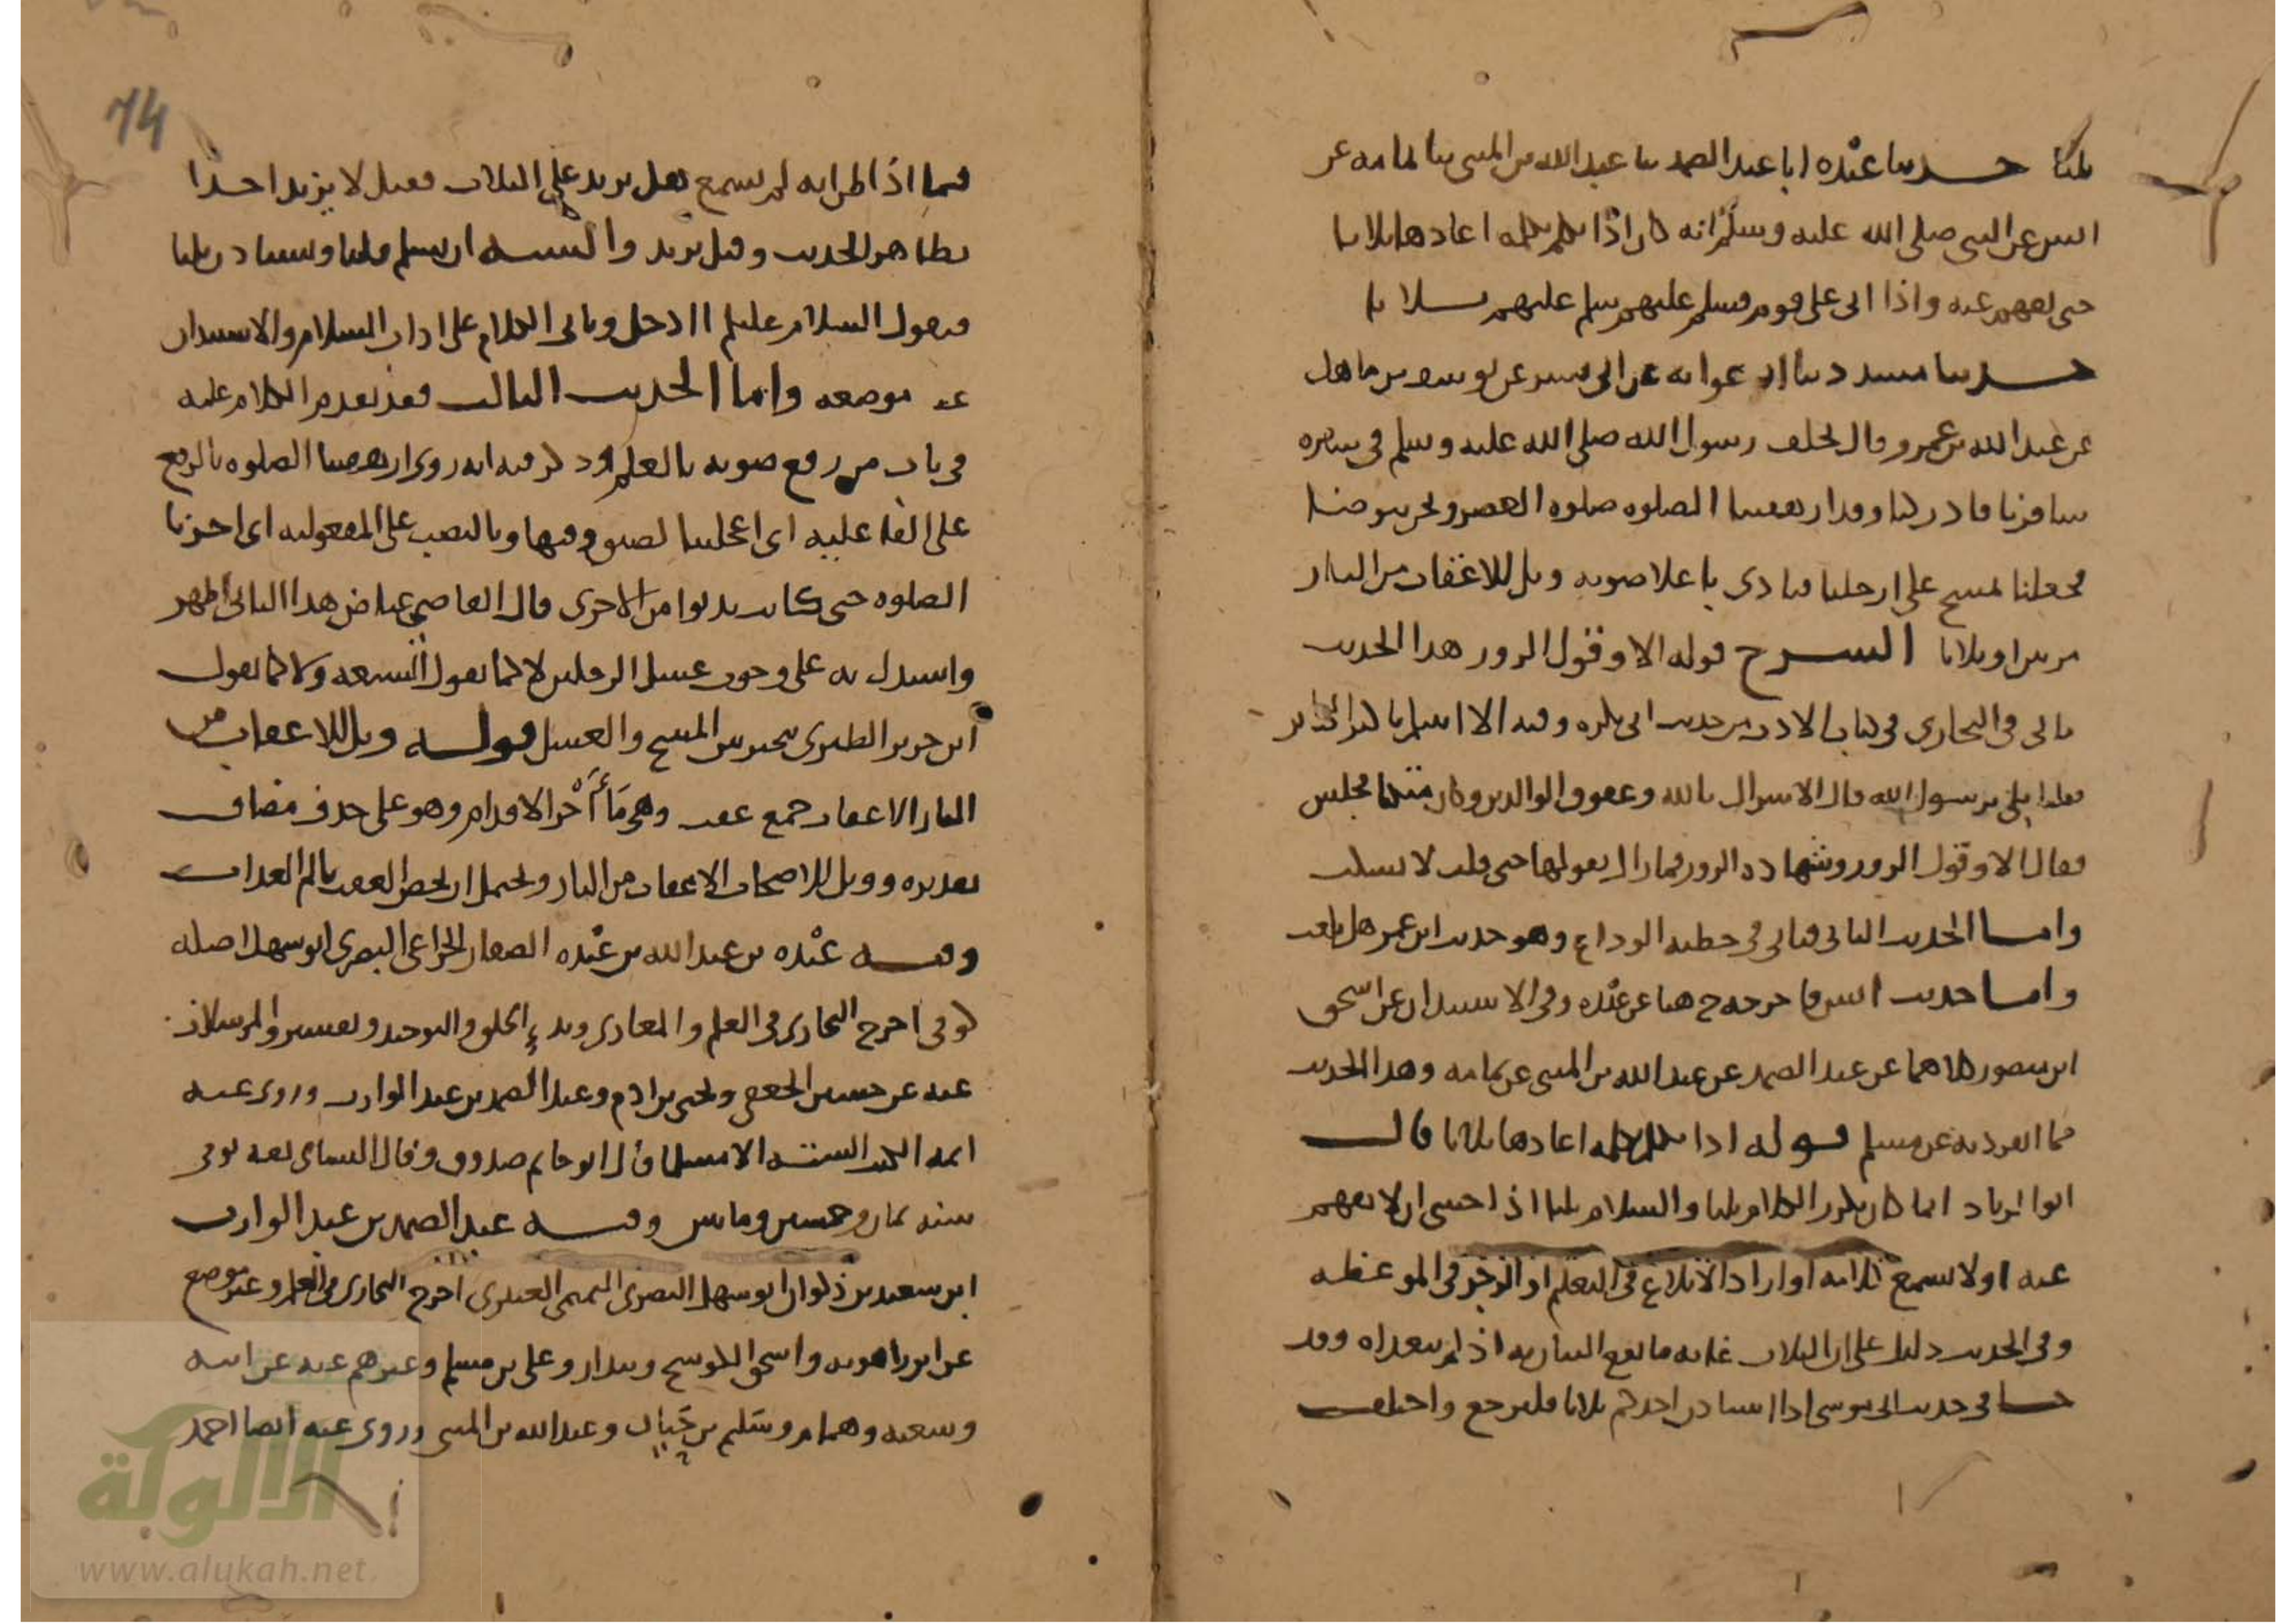 ثلثا حدثنا عبْده ابا عبد الصمد ثنا عبد الله بن المثنى ثنا ثمامه عن
انس عن النبي صلى الله عليه وسلم انه كان اذا تكلم بكلمه اعادها ثلاثا
حتى تفهم عنه واذا اتى على قوم فسلم عليهم سلم عليهم ثلاثا
حدثنا مسدد ثنا ابو عوانه عن ابي بشر عن يوسف بن ماهك
عن عبد الله بن عمرو قال تخلف رسول الله صلى الله عليه وسلم في سفره
سافرنا فادركنا وقد ارهقنا الصلوه صلوه العصر ونحن نتوضا
فجعلنا نمسح على ارجلنا فنادى باعلا صوته ويل للاعقاب من النار
مرتين او ثلاثا الشرح قوله الا وقول الزور هذا الحديث
ياتي في البخاري في كتاب الادب من حديث ابي بكره وفيه الا انبيكم باكبر الكبائر
قلنا بلى يرسول الله قال الاشراك بالله وعقوق الوالدين وكان متكئا فجلس
فقال الا وقول الزور وشهاده الزور فما زال يقولها حتى قلت لا يسكت
واما الحديث الثاني فياتي في خطبه الوداع وهو حديث ابن عمر هل بلغت
واما حديث انس فاخرجه خ هنا عن عبْده وفي الاستيذان عن اسحق
ابن منصور كلاهما عن عبد الصمد عن عبد الله بن المثنى عن ثمامه وهذا الحديث
مما انفرد به عن مسلم قوله اذا تكلم بكلمه اعادها ثلاثا قال
ابو الزناد انما كان يكرر الكلام ثلثا والسلام ثلثا اذا خشي ان لا يفهم
عنه او لا يسمع كلامه او اراد الابلاغ في التعليم او الزجر في الموعظه
وفي الحديث دليل على ان الثلاث غايه ما يقع البيان به اذ لم يتعداه وقد
جا في حديث ابي موسى اذا استاذن احدكم ثلاثا فليرجع واختلف
74
فيما اذا ظن انه لم يسمع هل يزيد على الثلاث فقيل لا يزيد اخذا
بظاهر الحديث وقيل يزيد والسنه ان يسلم ثلثا ويستاذن ثلثا
فيقول السلام عليكم اادخل وياتي الكلام على اداب السلام والاستيذان
عند موضعه واما الحديث الثالث فقد تقدم الكلام عليه
في باب من رفع صوته بالعلم وذكر فيه انه روي ارهقتنا الصلوه بالرفع
على الفاعليه اي اعجلتنا لضيق وقتها وبالنصب على المفعوليه اي اخرنا
الصلوه حتى كادت تدنوا من الاخرى قال القاضي عياض هذا الثاني اظهر
واستدل به على وجوب غسل الرجلين لا كما تقول الشيعه ولا كما يقول
ابن جرير الطبري يتخير بين المسح والغسل قوله ويل للاعقاب من
النار الاعقاب جمع عقب وهي مَا تأخر الاقدام وهو على حذف مضاف
تقديره وويل للاصحاب الاعقاب من النار ويحتمل ان يخص العقب بالم العذاب
وفيه عبْده بن عبد الله بن عبْده الصفار الخزاعي البصري ابو سهل اصله
كوفي اخرج البخاري في العلم والمغازي وبدء الخلق والتوحيد وتفسير والمرسلات
عنه عن حسين الجعفي ويحيى بن ادم وعبد الصمد بن عبد الوارث وروى عنه
ائمه الكتب الستة الا مسلما قال ابو حاتم صدوق وقال النساي ثقه توفي
سنه ثمان وخمسين ومايتين وفيه عبد الصمد بن عبد الوارث
ابن سعيد بن ذكوان ابو سهل البصري التميمي العنبري اخرج البخاري في العلم وغير موضع
عن ابن راهويه واسحق الكوسج وبندار وعلي بن مسلم وغيرهم عنه عن ابيه
وشعبه وهمام وسَليم بن حَيان وعبد الله بن المثنى وروى عنه ايضا احمد
الألوكة
www.alukah.net